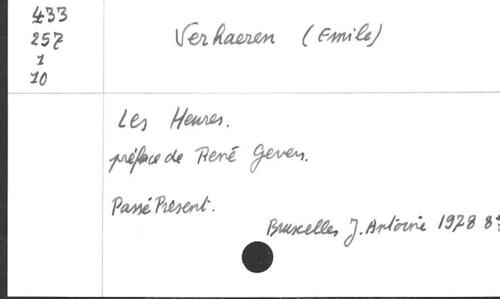 433
257
1
10
Verhaeren (Emile)
Les Heures.
préface de René Gevers.
Passé Présent.
Bruxelles J. Antoine 1978 8°